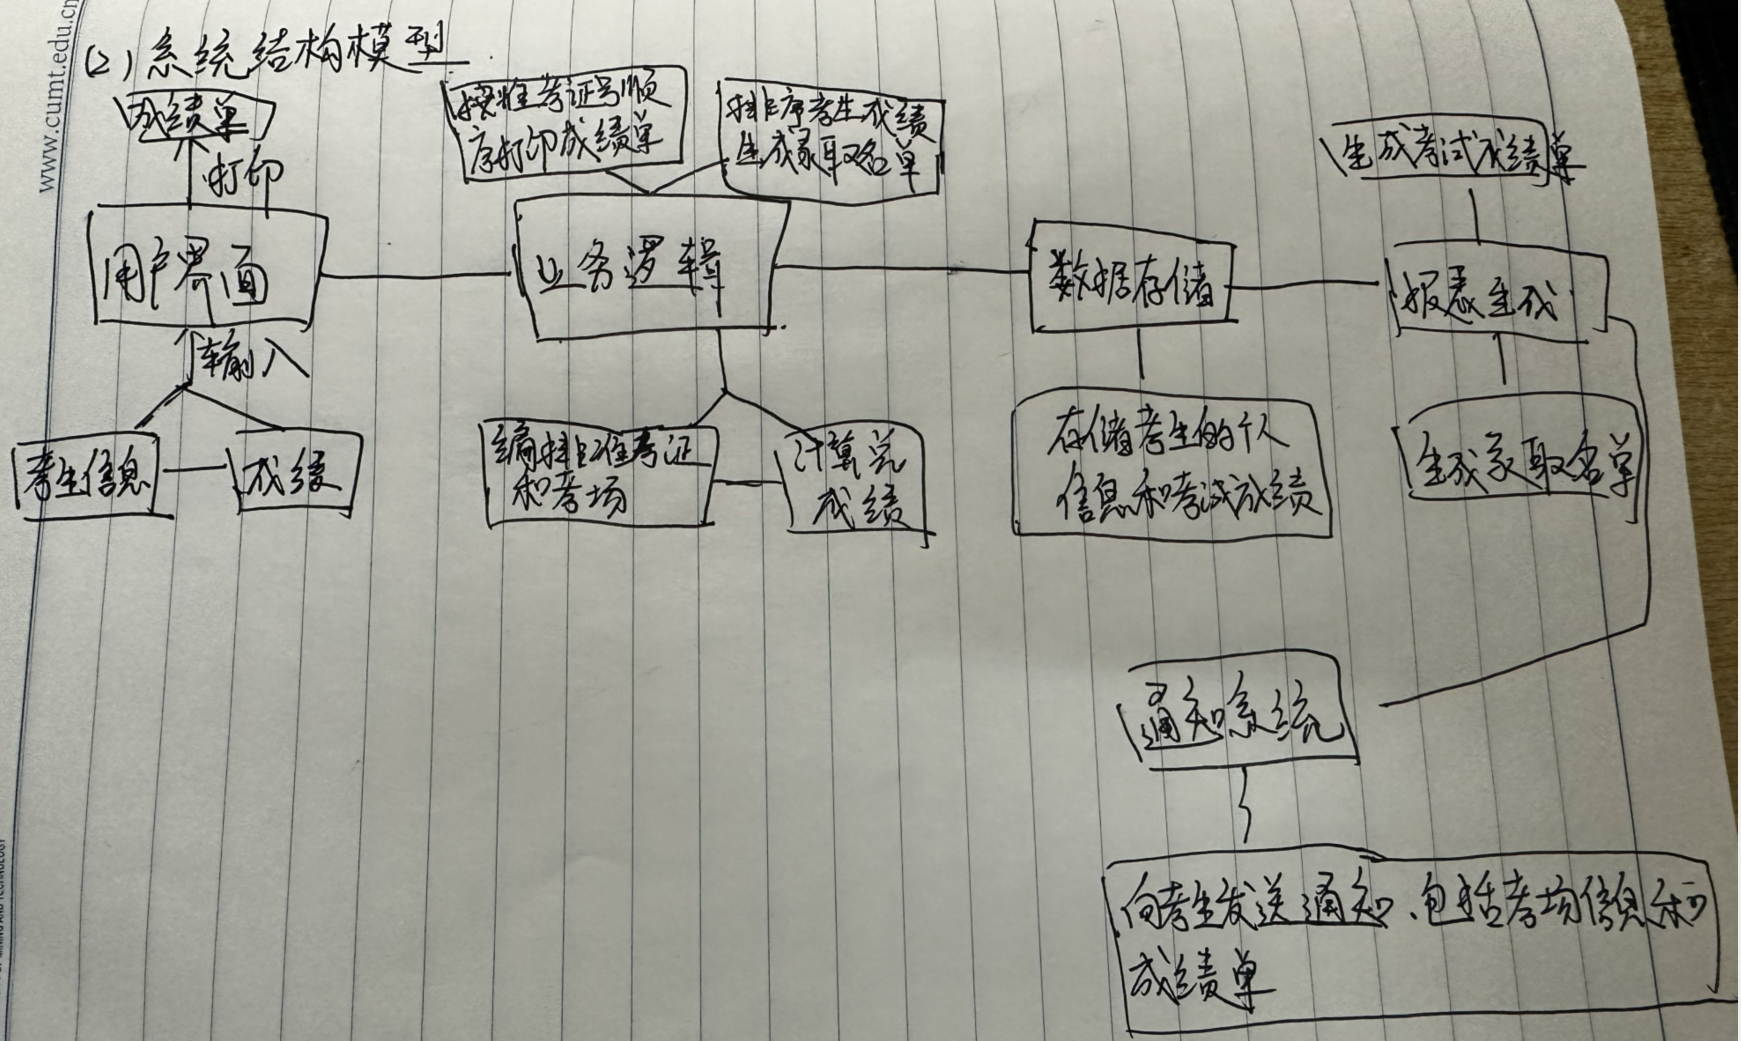 www.cumt.edu.cn
(2)系统结构模型
成绩单
打印
用户界面
输入
考生信息
成绩
按准考证号顺
序打印成绩单
排序考生成绩
生成录取名单
业务逻辑
编排准考证
和考场
计算总
成绩
数据存储
存储考生的个人
信息和考试成绩
生成考试成绩单
报表生成
生成录取名单
通知系统
向考生发送通知、包括考场信息和
成绩单